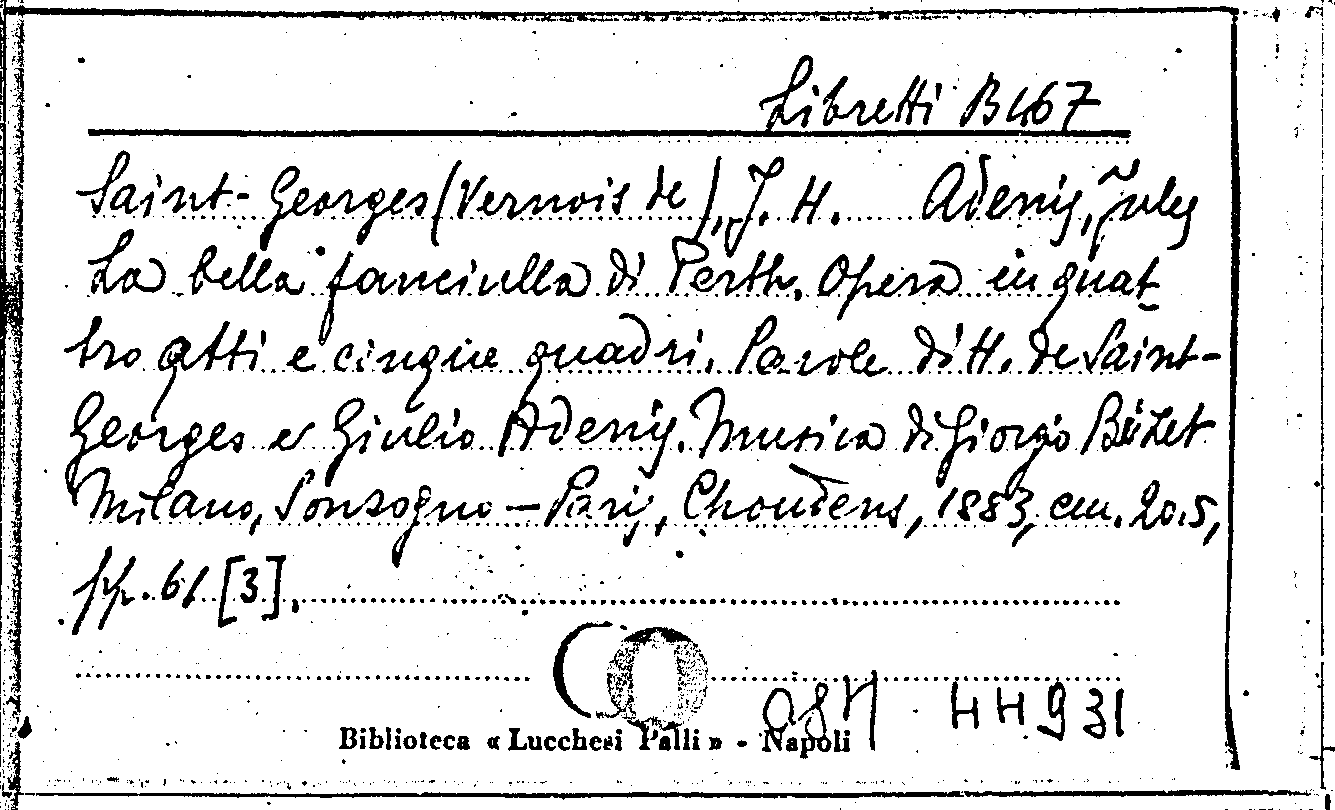 Libretti B467
Saint-Georges (Vernois de), J. H. Adenis, Jules
La bella fanciulla di Perth. Opera in quat-
tro atti e cinque quadri. Parole di H. de Saint-
Georges e Giulio Adenis. Musica di Giorgio Bizet
Milano, Sonzogno – Paris, Choudens, 1883, cm. 20.5,
pp. 61 [3].
44931
Biblioteca « Lucchesi Palli » - Napoli